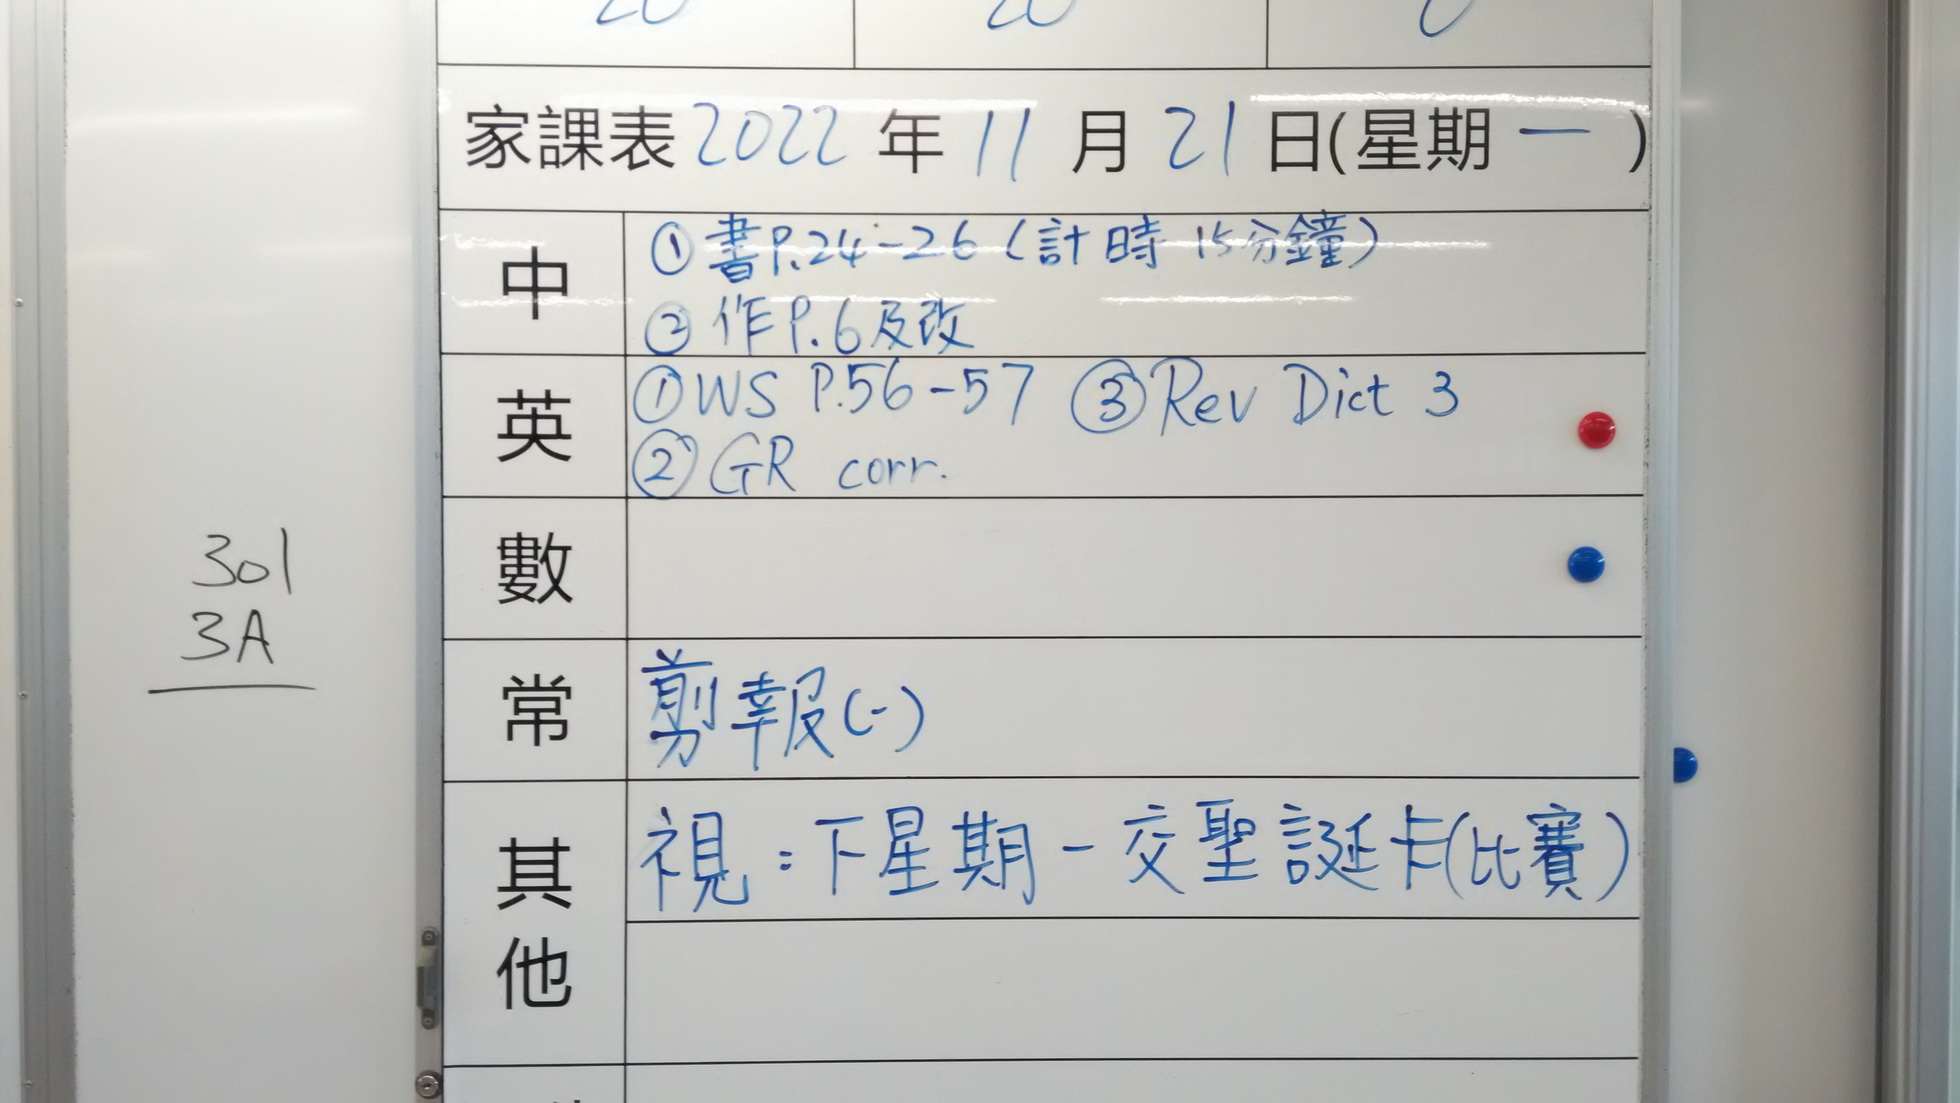 20 20 0
家課表 2022 年 11 月 21 日(星期 一 )
中
① 書P.24-26 (計時 15分鐘)
② 作P.6及改
英
① WS P.56-57 ③ Rev Dict 3
② GR corr.
數
常
剪報(一)
其他
視：下星期一交聖誕卡(比賽)
301
3A